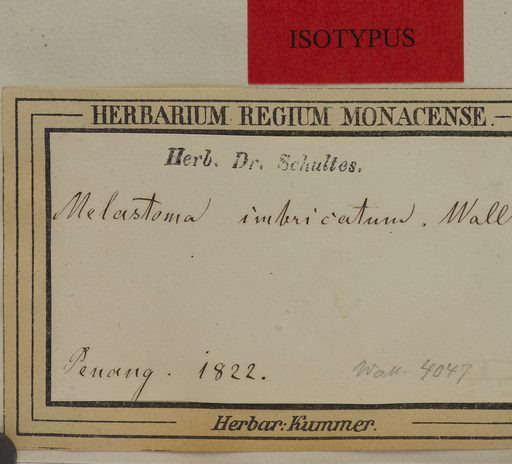 ISOTYPUS
HERBARIUM REGIUM MONACENSE.
Herb. Dr. Schultes.
Melastoma imbricatum. Wall
Penang. 1822. Wall. 4047
Herbar: Kummer.